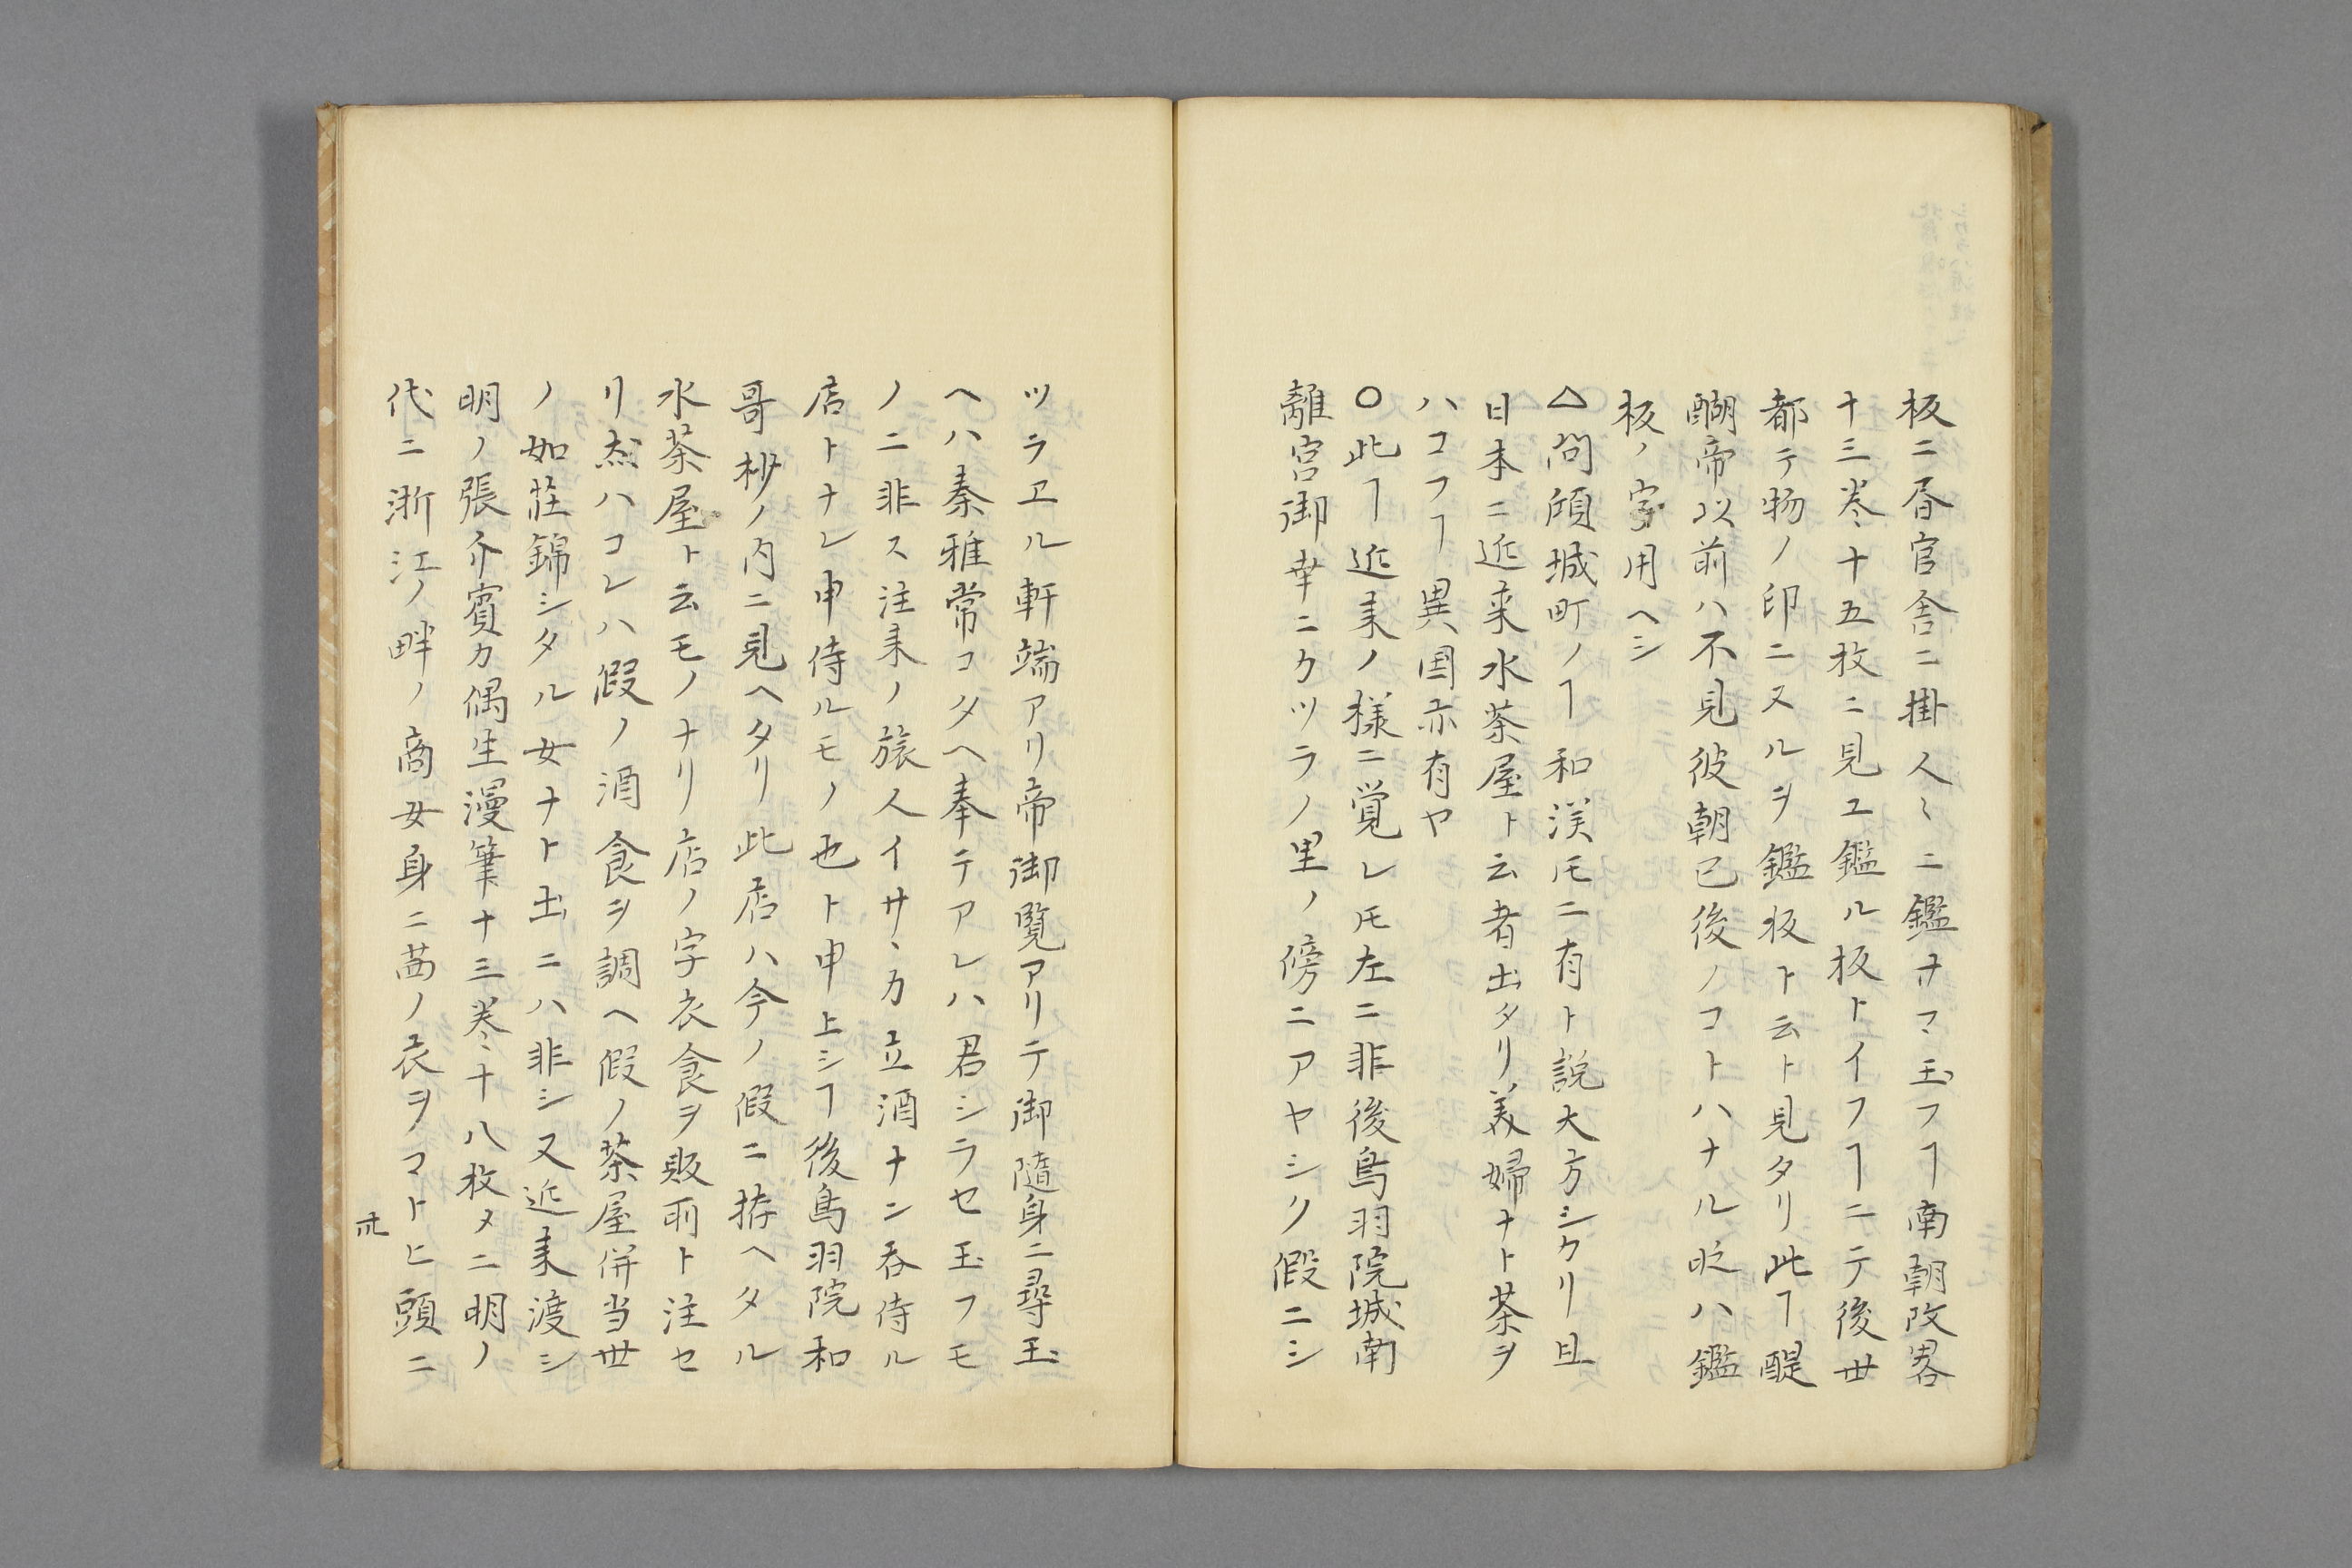 板ニ昏官舎ニ掛人〻ニ鑑サマ玉フヿ南朝改畧
十三巻十五枚ニ見ユ鑑ル板トイフヿニテ後世
都テ物ノ印ニスルヲ鑑板ト云ト見タリ此ヿ醍
醐帝以前ハ不見彼朝已後ノコトハナル㕝ハ鑑
板ノ字用ヘシ
△問頏城町ノヿ和漢𪜈ニ有ト説大方シクリ且
日本ニ近来水茶屋ト云者出タリ美婦ナト茶ヲ
ハコフヿ異国亦有ヤ
〇此ヿ近来ノ様ニ覚レ𪜈左ニ非後鳥羽院城南
離宮御幸ニクツラノ里ノ傍ニアヤシク假ニシ
ツラヱル軒端アリ帝御覧アリテ御隨身ニ尋玉
ヘハ秦雅常コタヘ奉テアレハ君シラセ玉フモ
ノニ非ス注来ノ旅人イサヽカ立酒ナン呑侍ル
店トナレ申侍ルモノ也ト申上シヿ後鳥羽院和
哥杪ノ内ニ見ヘタリ此店ハ今ノ假ニ拵ヘタル
水茶屋ト云モノナリ店ノ字衣食ヲ販所ト注セ
リ然ハコレハ假ノ酒食ヲ調ヘ假ノ茶屋併当世
ノ如荘錦シタル女ナト出ニハ非シ又近来渡シ
明ノ張介賓カ偶生漫筆十三巻十八枚メニ明ノ
代ニ浙江ノ畔ノ商女身ニ茜ノ衣ヲマトヒ頭ニ
卅